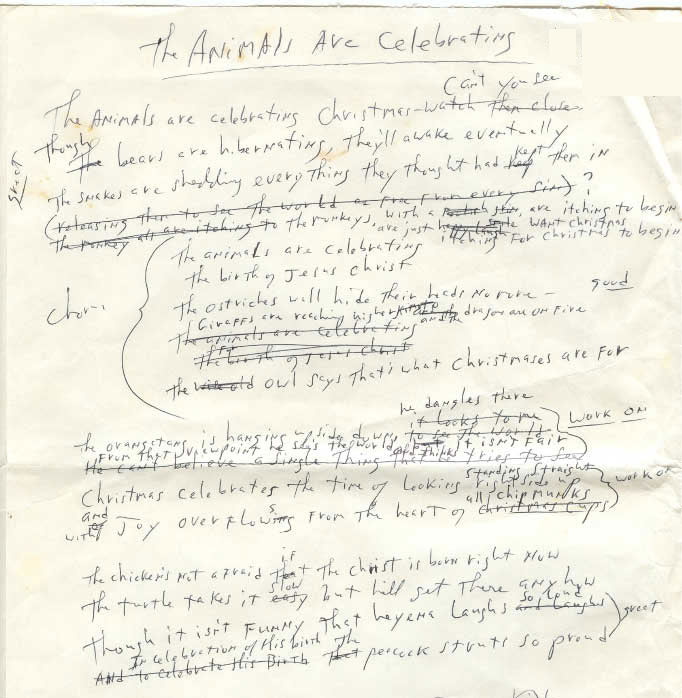 The Animals Are Celebrating
Can't you see
The Animals are celebrating Christmas - watch them close
Though
The bears are hibernating, they'll awake eventually
great
kept
The snakes are shedding everything they thought had them in
(releasing them to see the world as free from every sin) ?
The monkeys, with a are itching to begin
The monkey all are itching to are just WANT Christmas
itching For Christmas to begin
The animals are celebrating
the birth of Jesus Christ
Chor.
The ostriches will hide their heads no more - good
Giraffs are reaching higher and the dragons are on fire
The animals are celebrating
For
the birth of Jesus Christ
the wise old owl says that's what Christmases are For
he dangles there
it looks to me WORK ON
the orangetang is hanging upside down, to see the world
From that viewpoint he sees the world and thinks it isn't Fair
He can't believe a single thing that he tries to see
standing straight
Christmas celebrates the time of looking right side up work on
all chipmunks
and
with Joy overflows From the heart of Christmas cups
ing
if
the chicken's not afraid that the Christ is born right now
slow
the turtle takes it easy but he'll get there any how
so loud
though it isn't FUNNY that hayena laughs and laughs great
In celebration of His birth The
And to celebrate His Birth that peacock struts so proud